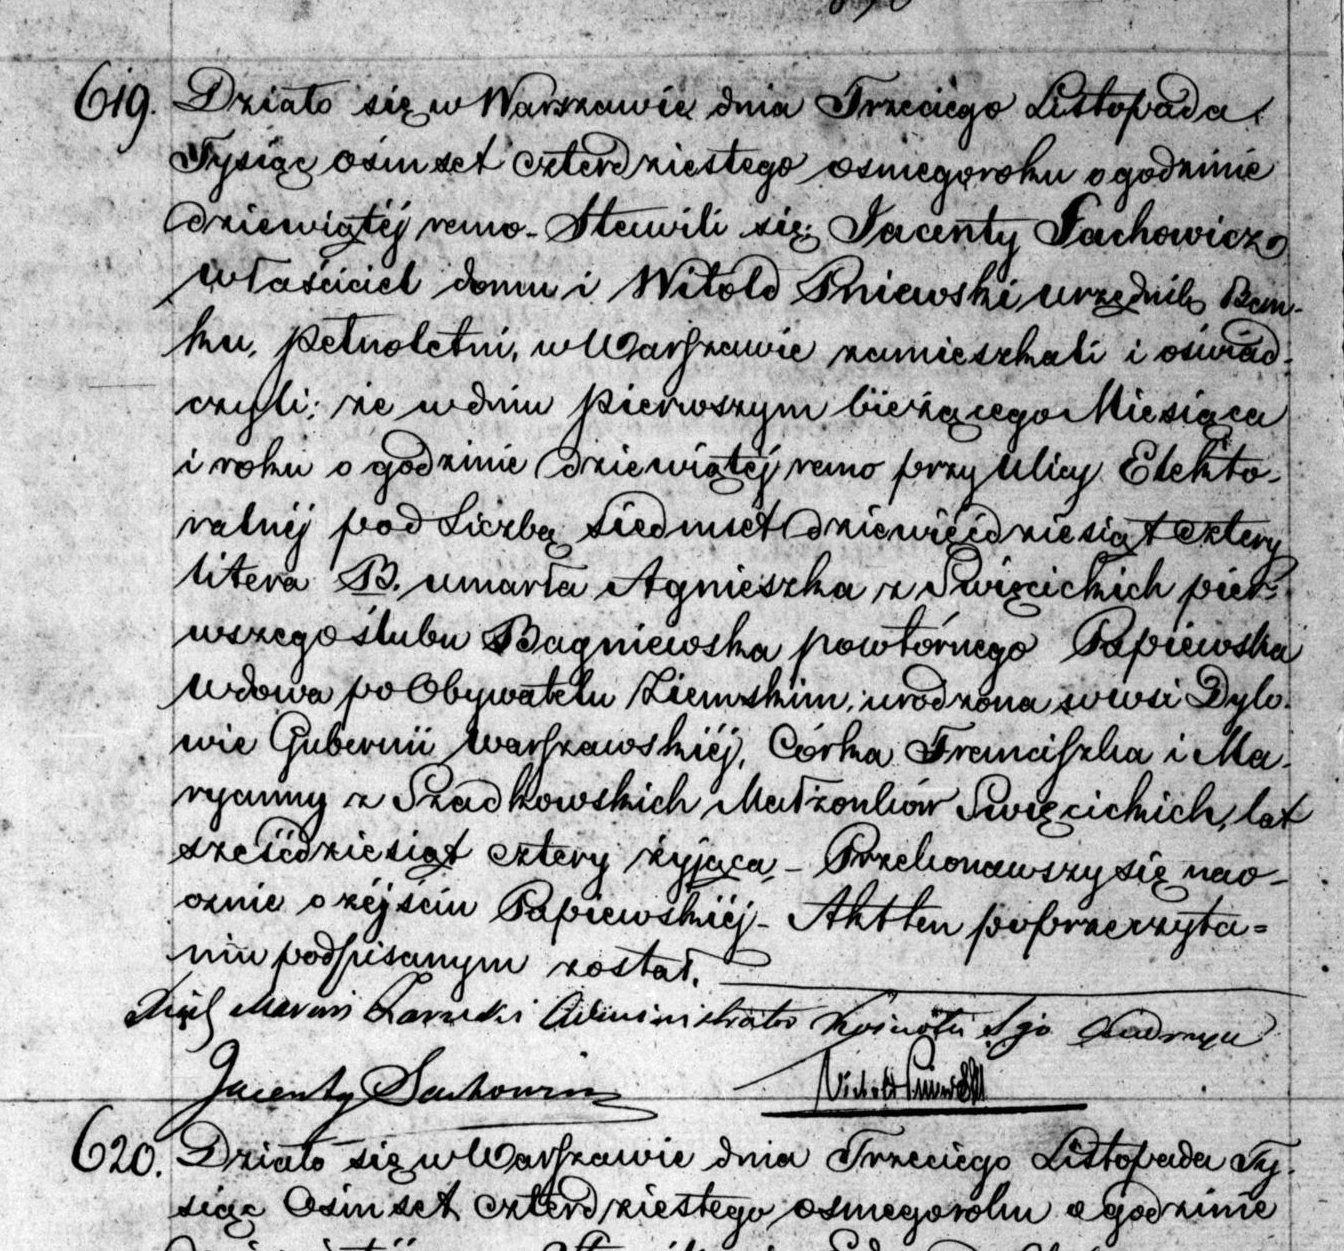 619. Działo się w Warszawie dnia Trzeciego Listopada
Tysiąc ośmset czterdziestego osmego roku o godzinie
dziewiątéj rano. Stawili się Jacenty Sachowicz
właściciel domu i Witold Pniewski urzędnik Ban-
ku, pełnoletni, w Warszawie zamieszkali i oświad-
czyli; że w dniu pierwszym bieżącego Miesiąca
i roku o godzinie dziewiątéj rano przy ulicy Elekto-
ralnéj pod Liczbą siedmset dziewięćdziesiąt cztery
litera B. umarła Agnieszka z Swięcickich pier-
wszego ślubu Bagniewska powtórnego Papiewska
wdowa po Obywatelu Ziemskim, urodzona we wsi Dylo-
wie Gubernii Warszawskiéj, Córka Franciszka i Ma-
ryanny z Szadkowskich Małżonków Swięcickich, lat
sześćdziesiąt cztery żyjąca, - Przekonawszy się nao-
cznie o zéjściu Papiewskiéj - Akt ten po przeczyta=
niu podpisanym został.
Xiądz Marcin Administrator Kościoła Sgo Andrzeja
Jacenty Sachowicz Witold Pniewski
620. Działo się w Warszawie dnia Trzeciego Listopada Ty-
siąc Ośmset czterdziestego osmego roku o godzinie